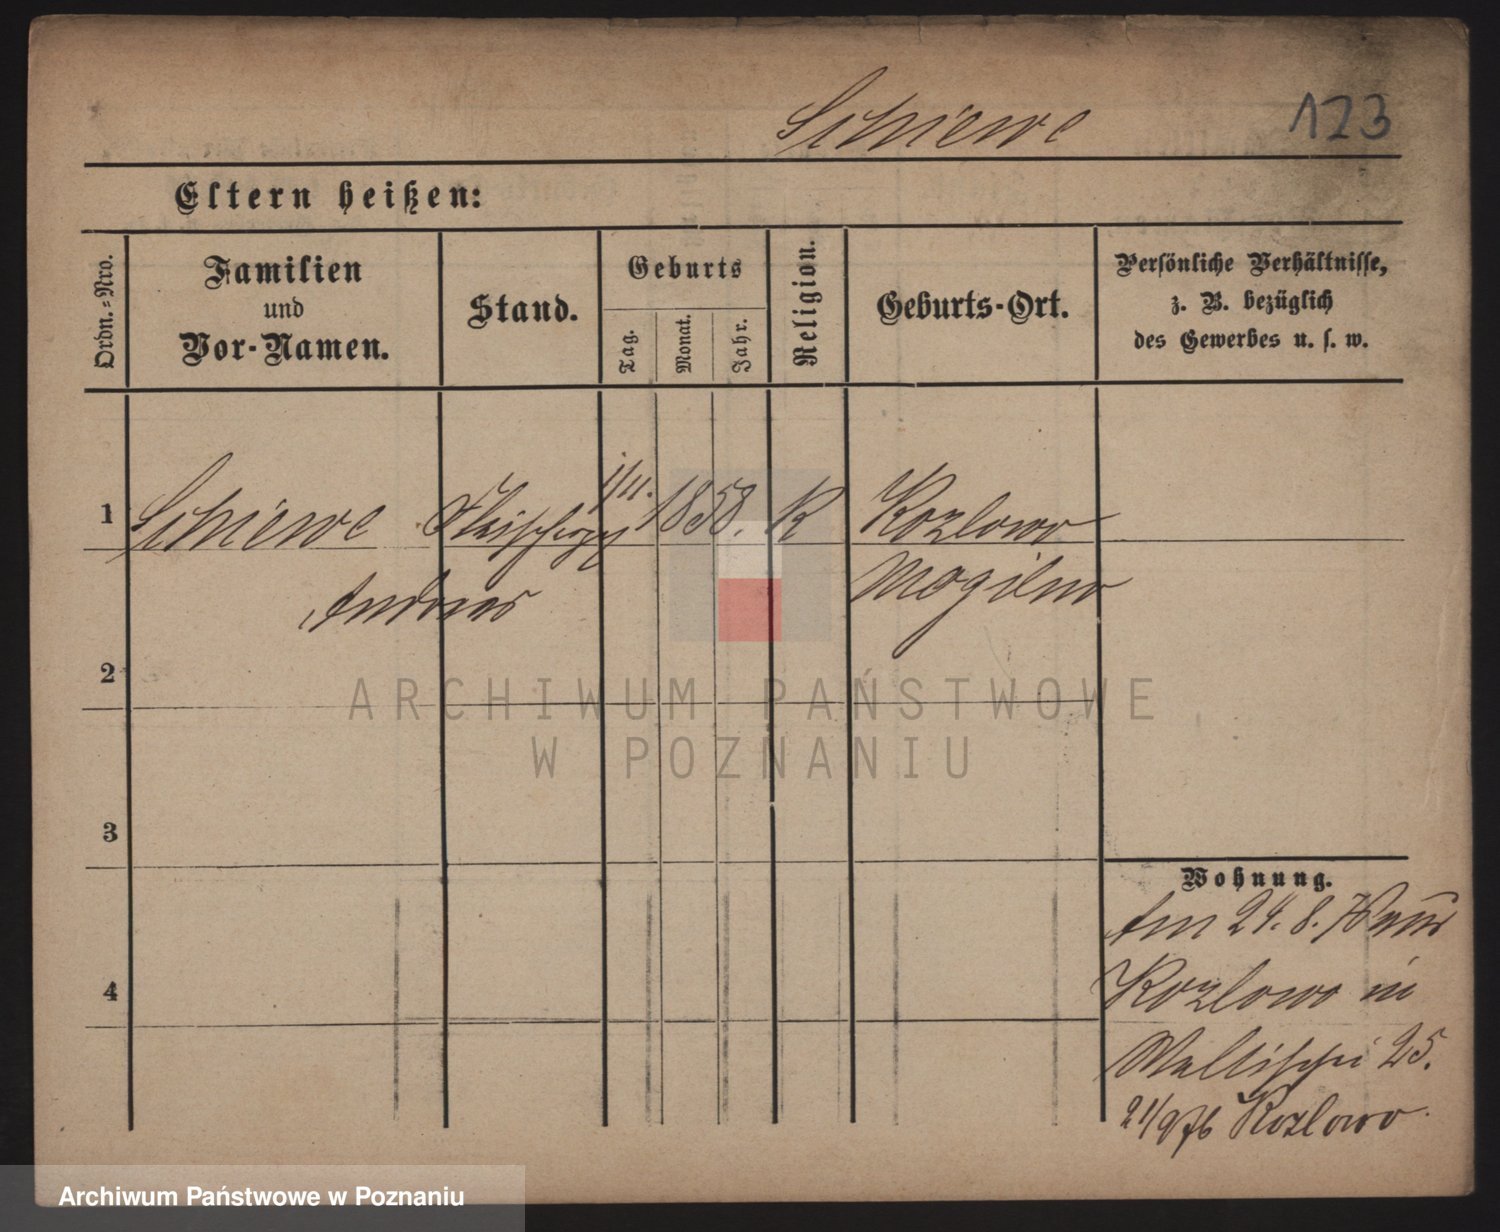 Schiewe 123
Eltern heißen:
Ordn.-Nro.
Familien
und
Vor-Namen.
Stand.
Geburts
Tag.
Monat.
Jahr.
Religion.
Geburts-Ort.
Persönliche Verhältnisse,
z. B. bezüglich
des Gewerbes u. s. w.
1 Schiewe 1/11. 1858. K Kozlowo
Andreas Mogilno
2
3
4
Wohnung.
Am 24. 8. 76 aus
Kozlowo in
Wallischei 25.
21/9 76 Kozlowo.
ARCHIWUM PAŃSTWOWE
W POZNANIU
Archiwum Państwowe w Poznaniu